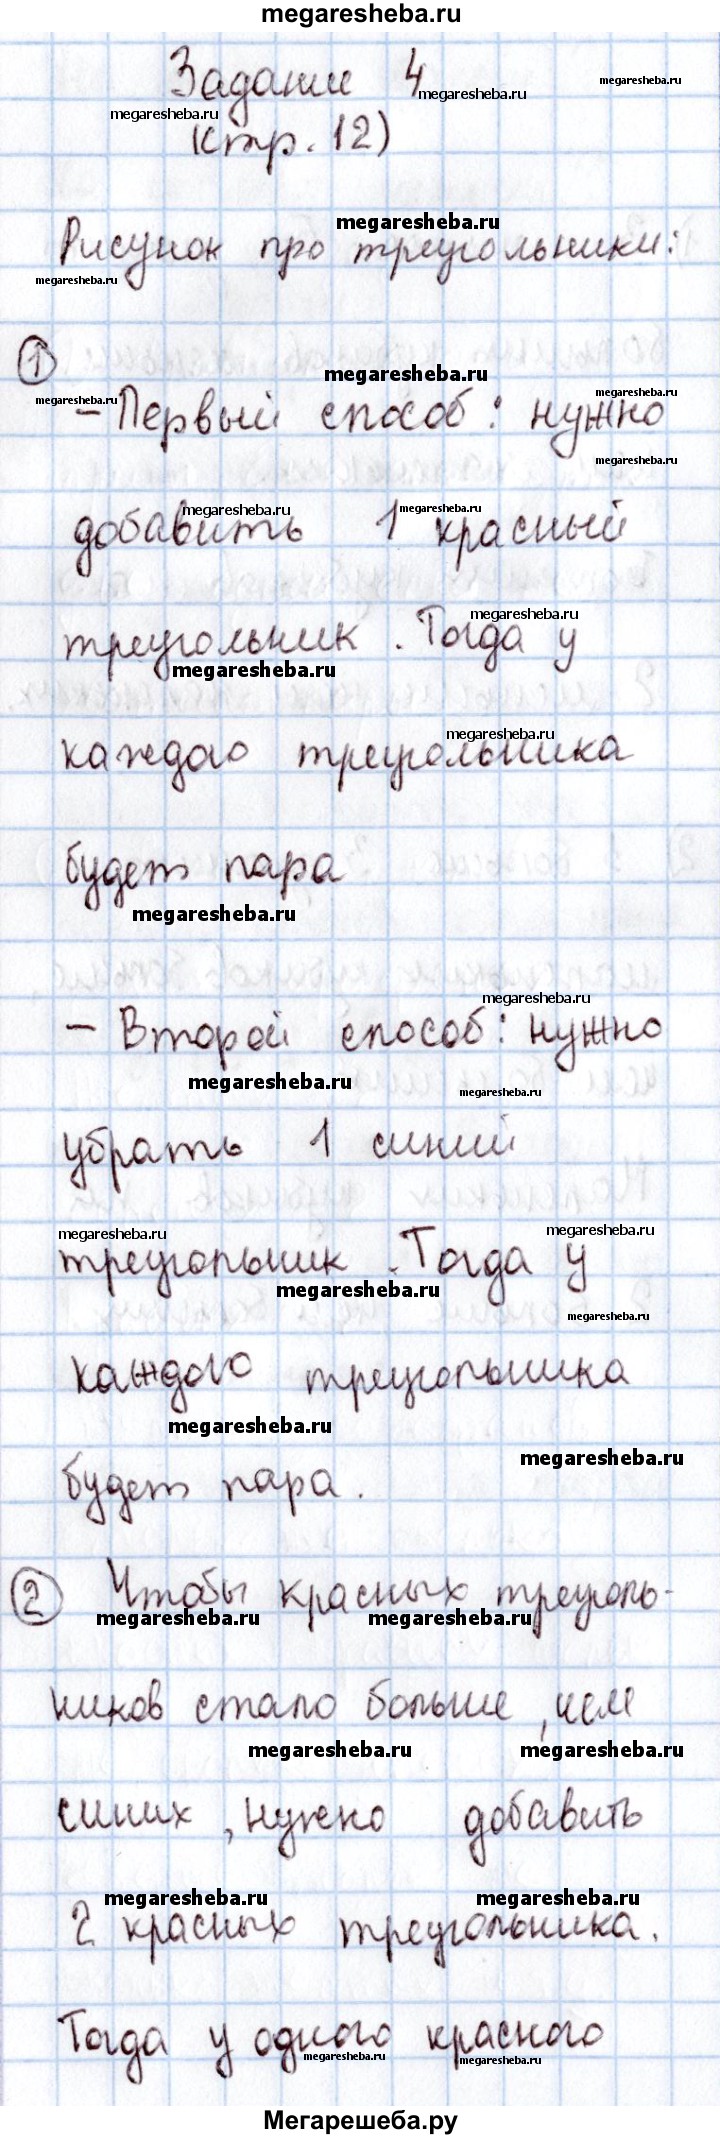 megaresheba.ru
Задание 4
(стр. 12)
Рисунок про треугольники:
1
- Первый способ: нужно
добавить 1 красный
треугольник. Тогда у
каждого треугольника
будет пара
- Второй способ: нужно
убрать 1 синий
треугольник. Тогда у
каждого треугольника
будет пара.
2 Чтобы красных треуголь-
ников стало больше, чем
синих, нужно добавить
2 красных треугольника.
Тогда у одного красного
Мегарешеба.ру